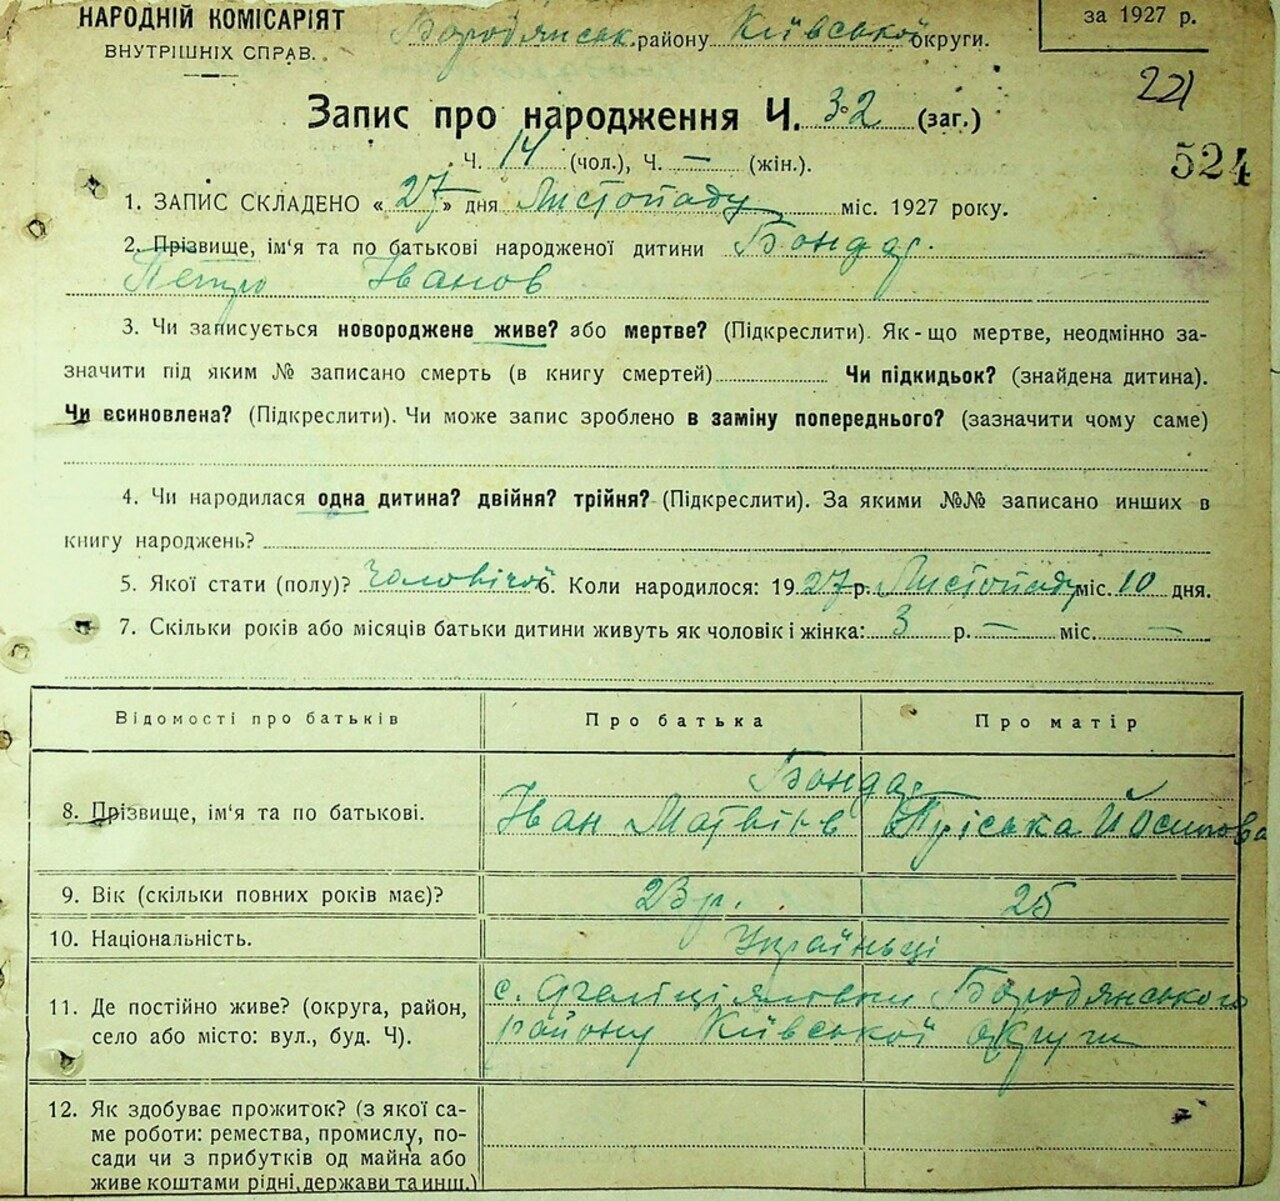 НАРОДНІЙ КОМІСАРІЯТ
ВНУТРІШНІХ СПРАВ.
Бородянськ. району Київської округи.
за 1927 р.
221
Запис про народження Ч. 32 (заг.)
Ч. 14 (чол.), Ч. — (жін.).
524
1. ЗАПИС СКЛАДЕНО « 27 » дня Листопаду міс. 1927 року.
2. Прізвище, ім‘я та по батькові народженої дитини Бондар.
Петро Іванов
3. Чи записується новороджене живе? або мертве? (Підкреслити). Як-що мертве, неодмінно за-
значити під яким № записано смерть (в книгу смертей) Чи підкидьок? (знайдена дитина).
Чи всиновлена? (Підкреслити). Чи може запис зроблено в заміну попереднього? (зазначити чому саме)
4. Чи народилася одна дитина? двійня? трійня? (Підкреслити). За якими №№ записано инших в
книгу народжень?
5. Якої стати (полу)? Чоловічої 6. Коли народилося: 1927 р. Листопаду міс. 10 дня.
7. Скільки років або місяців батьки дитини живуть як чоловік і жінка: 3 р. — міс. —
Відомості про батьків Про батька Про матір
Бондар
8. Прізвище, ім‘я та по батькові. Іван Матвіїв Пріська Йосипова
9. Вік (скільки повних років має)? 23 р. 25
10. Національність. Українці
11. Де постійно живе? (округа, район, с. Бородянського
село або місто: вул., буд. Ч). району Київської округи
12. Як здобуває прожиток? (з якої са-
ме роботи: ремества, промислу, по-
сади чи з прибутків од майна або
живе коштами рідні, держави та инш.)